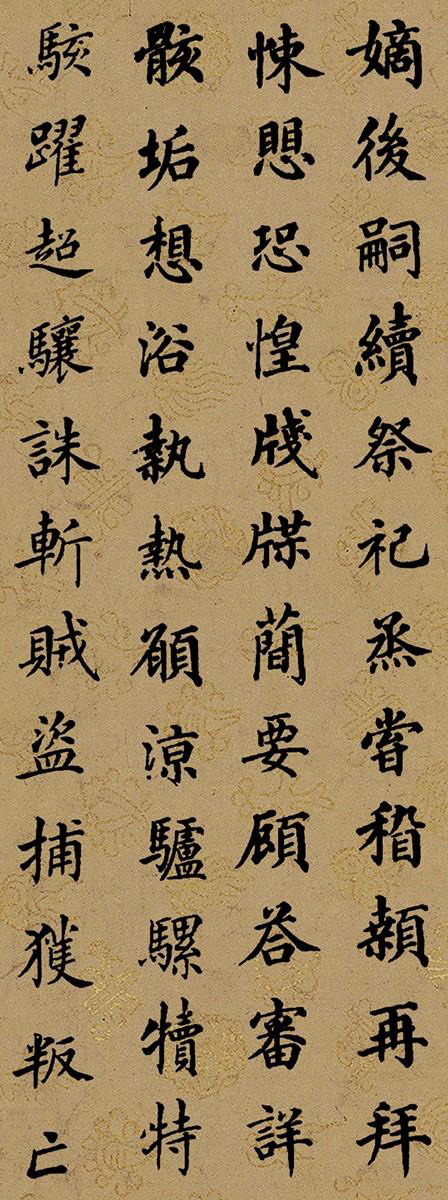 嫡後嗣續祭祀蒸嘗稽顙再拜
悚懼恐惶牋牒簡要顧答審詳
骸垢想浴執熱願涼驢騾犢特
駭躍超驤誅斬賊盜捕獲叛亡